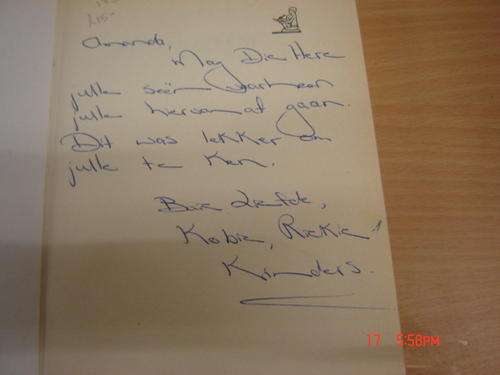 Amanda,
Mag Die Here
julle seën waarheen
julle hiervan af gaan.
Dit was lekker om
julle te ken.
Baie Liefde,
Kobie, Riekie
Kinders.
17 5:58PM